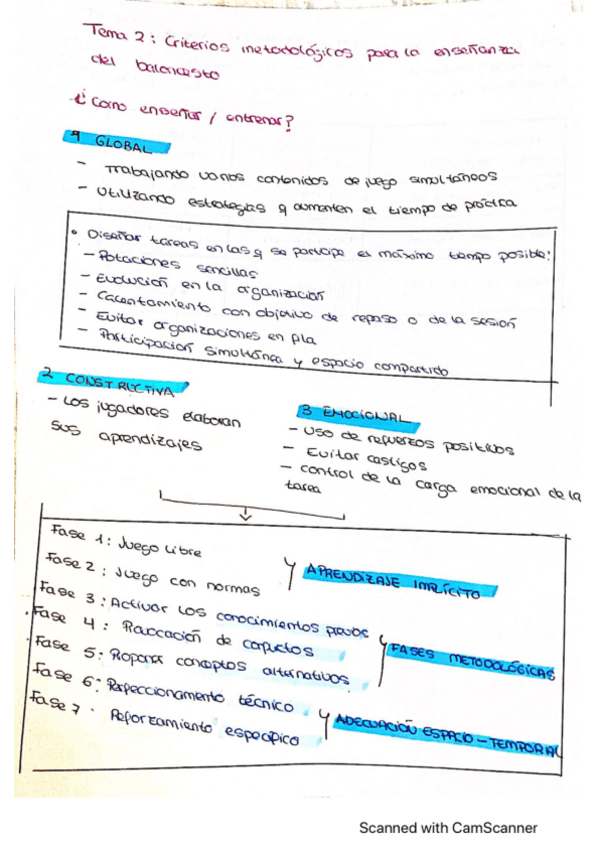 Tema 2: Criterios metodológicos para la enseñanza
del baloncesto
¿Como enseñar / entrenar?
1 GLOBAL
- Trabajando varios contenidos de juego simultáneos
- Utilizando estrategias q aumenten el tiempo de práctica
• Diseñar tareas en las q se participe el máximo tiempo posible:
- Rotaciones sencillas
- Evolución en la organización
- Calentamiento con objetivo de repaso o de la sesión
- Evitar organizaciones en fila
- Participación simultánea y espacio compartido
2 CONSTRUCTIVA
- Los jugadores elaboran
sus aprendizajes
3 EMOCIONAL
- Uso de refuerzos positivos
- Evitar castigos
- control de la carga emocional de la
tarea
Fase 1: Juego libre
Fase 2: Juego con normas
APRENDIZAJE IMPLÍCITO
Fase 3: Activar los conocimientos previos
Fase 4: Provocación de conflictos
Fase 5: Proponer conceptos alternativos
FASES METODOLÓGICAS
Fase 6: Perfeccionamiento técnico
Fase 7: Reforzamiento específico
ADECUACIÓN ESPACIO-TEMPORAL
Scanned with CamScanner